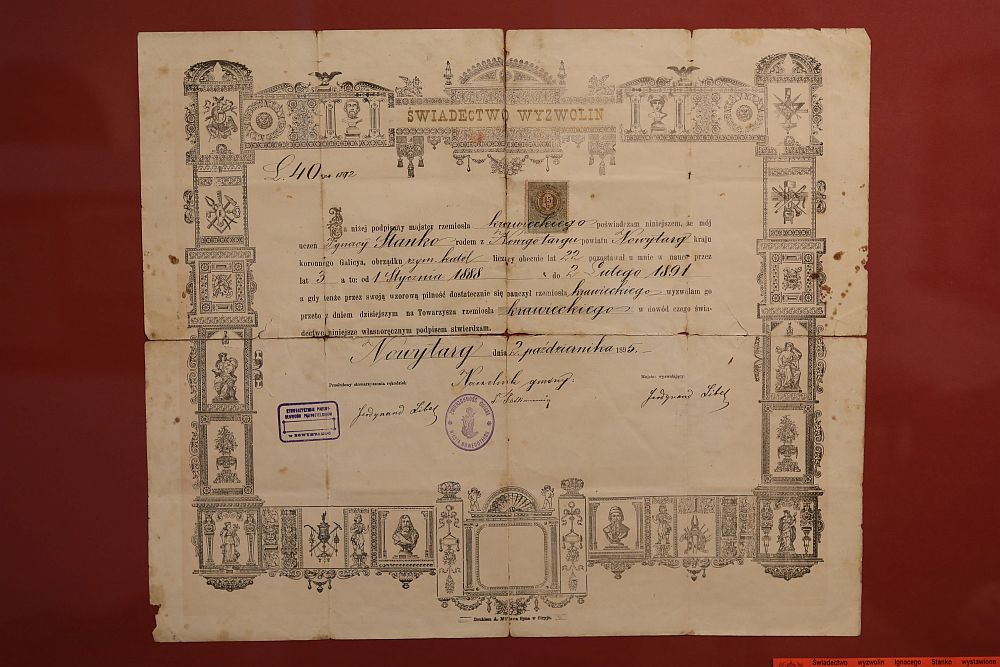 ŚWIADECTWO WYZWOLIN
L. 40
Ja niżej podpisany majster rzemiosła krawieckiego poświadczam niniejszem, że mój
uczeń Ignacy Stanko rodem z Nowego targu powiatu Nowytarg kraju
koronnego Galicya, obrządku rzym. katol liczący obecnie lat 22 pozostawał u mnie w nauce przez
lat 3 a to: od 1 Stycznia 1888 do 2 Lutego 1891
a gdy tenże przez swoją wzorową pilność dostatecznie się nauczył rzemiosła krawieckiego wyzwalam go
przeto z dniem dzisiejszym na Towarzysza rzemiosła krawieckiego w dowód czego świa-
dectwo niniejsze własnoręcznym podpisem stwierdzam.
Nowytarg dnia 2 października 1895.
Przełożony stowarzyszenia rękodziel: Naczelnik gminy: Majster wyzwalający:
Ferdynand Ferdynand
w NOWYMTARGU
ZWIERZCHNOŚĆ GMINY
Drukiem A. Müllera Syna w Stryju.
Świadectwo wyzwolin Ignacego Stanko wystawione